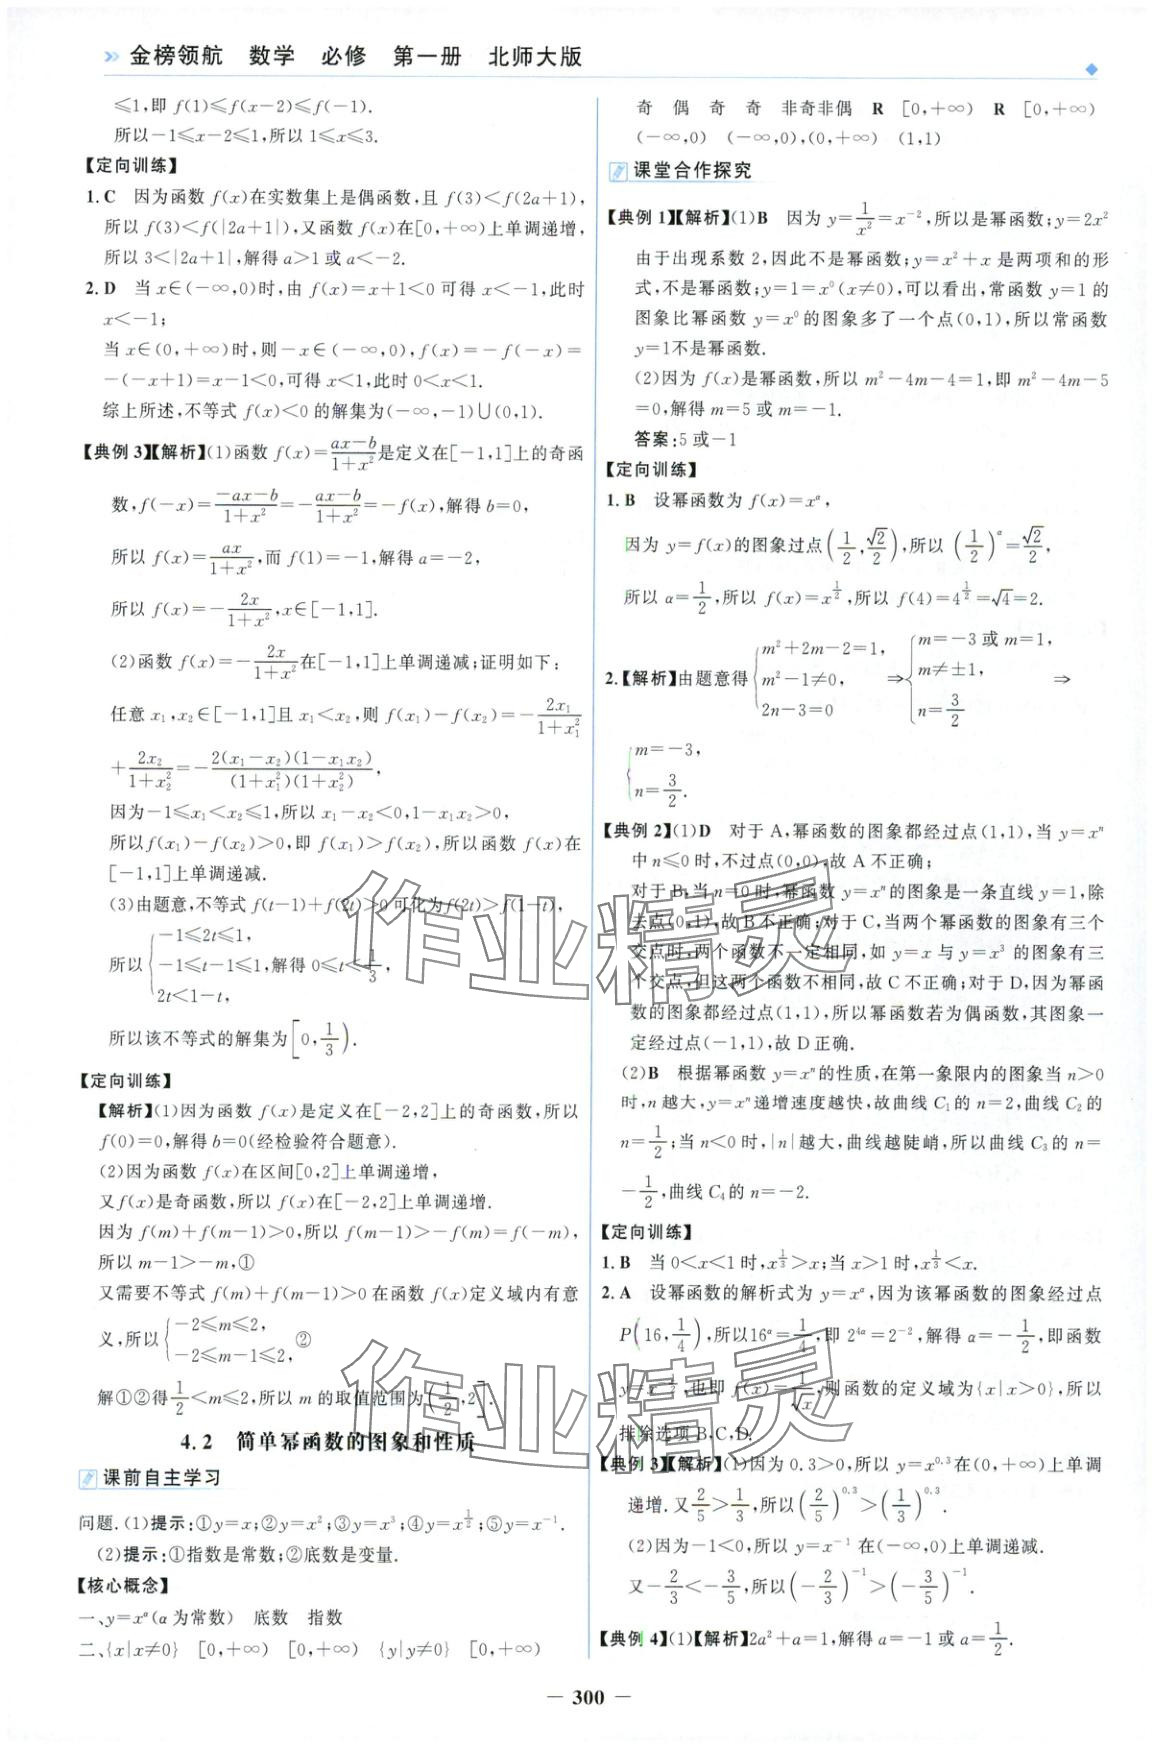 金榜领航 数学 必修 第一册 北师大版
≤1,即 f(1)≤f(x-2)≤f(-1).
所以-1≤x-2≤1,所以 1≤x≤3.
【定向训练】
1.C 因为函数 f(x)在实数集上是偶函数,且 f(3)<f(2a+1),
所以 f(3)<f(|2a+1|),又函数 f(x)在[0,+∞)上单调递增,
所以 3<|2a+1|,解得 a>1 或 a<-2.
2.D 当 x∈(-∞,0)时,由 f(x)=x+1<0 可得 x<-1,此时
x<-1;
当 x∈(0,+∞)时,则-x∈(-∞,0),f(x)=-f(-x)=
-(-x+1)=x-1<0,可得 x<1,此时 0<x<1.
综上所述,不等式 f(x)<0 的解集为(-∞,-1)∪(0,1).
【典例 3】【解析】(1)函数 f(x)=(ax-b)/(1+x²)是定义在[-1,1]上的奇函
数,f(-x)=(-ax-b)/(1+x²)=-(ax-b)/(1+x²)=-f(x),解得 b=0,
所以 f(x)=ax/(1+x²),而 f(1)=-1,解得 a=-2,
所以 f(x)=-2x/(1+x²),x∈[-1,1].
(2)函数 f(x)=-2x/(1+x²)在[-1,1]上单调递减;证明如下:
任意 x₁,x₂∈[-1,1]且 x₁<x₂,则 f(x₁)-f(x₂)=-2x₁/(1+x₁²)
+2x₂/(1+x₂²)=-2(x₁-x₂)(1-x₁x₂)/((1+x₁²)(1+x₂²)),
因为-1≤x₁<x₂≤1,所以 x₁-x₂<0,1-x₁x₂>0,
所以f(x₁)-f(x₂)>0,即 f(x₁)>f(x₂),所以函数 f(x)在
[-1,1]上单调递减.
(3)由题意,不等式 f(t-1)+f(2t)>0 可化为f(2t)>f(1-t),
所以{-1≤2t≤1,
-1≤t-1≤1,解得 0≤t<1/3,
2t<1-t,
所以该不等式的解集为[0,1/3).
【定向训练】
【解析】(1)因为函数 f(x)是定义在[-2,2]上的奇函数,所以
f(0)=0,解得 b=0(经检验符合题意).
(2)因为函数 f(x)在区间[0,2]上单调递增,
又 f(x)是奇函数,所以 f(x)在[-2,2]上单调递增.
因为 f(m)+f(m-1)>0,所以 f(m-1)>-f(m)=f(-m),
所以 m-1>-m,①
又需要不等式 f(m)+f(m-1)>0 在函数 f(x)定义域内有意
义,所以{-2≤m≤2,
-2≤m-1≤2,②
解①②得1/2<m≤2,所以 m 的取值范围为(1/2,2].
4.2 简单幂函数的图象和性质
课前自主学习
问题.(1)提示:①y=x;②y=x²;③y=x³;④y=x^(1/2);⑤y=x⁻¹.
(2)提示:①指数是常数;②底数是变量.
【核心概念】
一、y=x^α(α 为常数) 底数 指数
二、{x|x≠0} [0,+∞) [0,+∞) {y|y≠0} [0,+∞)
奇 偶 奇 奇 非奇非偶 R [0,+∞) R [0,+∞)
(-∞,0) (-∞,0),(0,+∞) (1,1)
课堂合作探究
【典例 1】【解析】(1)B 因为 y=1/x²=x⁻²,所以是幂函数;y=2x²
由于出现系数 2,因此不是幂函数;y=x²+x 是两项和的形
式,不是幂函数;y=1=x⁰(x≠0),可以看出,常函数 y=1 的
图象比幂函数 y=x⁰的图象多了一个点(0,1),所以常函数
y=1不是幂函数.
(2)因为 f(x)是幂函数,所以 m²-4m-4=1,即 m²-4m-5
=0,解得 m=5 或 m=-1.
答案:5 或-1
【定向训练】
1.B 设幂函数为 f(x)=x^α,
因为 y=f(x)的图象过点(1/2,√2/2),所以 (1/2)^α=√2/2,
所以 α=1/2,所以 f(x)=x^(1/2),所以 f(4)=4^(1/2)=√4=2.
2.【解析】由题意得{m²+2m-2=1,
m²-1≠0,
2n-3=0
⇒{m=-3 或 m=1,
m≠±1,
n=3/2
⇒
{m=-3,
n=3/2.
【典例 2】(1)D 对于 A,幂函数的图象都经过点(1,1),当 y=xⁿ
中 n≤0 时,不过点(0,0),故 A 不正确;
对于 B,当 n=0 时,幂函数 y=xⁿ的图象是一条直线 y=1,除
去点(0,1),故 B 不正确;对于 C,当两个幂函数的图象有三个
交点时,两个函数不一定相同,如 y=x 与 y=x³ 的图象有三
个交点,但这两个函数不相同,故 C 不正确;对于 D,因为幂函
数的图象都经过点(1,1),所以幂函数若为偶函数,其图象一
定经过点(-1,1),故 D 正确.
(2)B 根据幂函数 y=xⁿ的性质,在第一象限内的图象当 n>0
时,n 越大,y=xⁿ递增速度越快,故曲线 C₁的 n=2,曲线 C₂的
n=1/2;当 n<0 时,|n|越大,曲线越陡峭,所以曲线 C₃的 n=
-1/2,曲线 C₄的 n=-2.
【定向训练】
1.B 当 0<x<1 时,x^(1/3)>x;当 x>1 时,x^(1/3)<x.
2.A 设幂函数的解析式为 y=x^α,因为该幂函数的图象经过点
P(16,1/4),所以16^α=1/4,即 2^(4α)=2⁻²,解得 α=-1/2,即函数
y=x^(-1/2),也即 f(x)=1/√x,则函数的定义域为{x|x>0},所以
排除选项 B,C,D.
【典例 3】【解析】(1)因为 0.3>0,所以 y=x^0.3在(0,+∞)上单调
递增.又2/5>1/3,所以(2/5)^0.3>(1/3)^0.3.
(2)因为-1<0,所以 y=x⁻¹在(-∞,0)上单调递减.
又-2/3<-3/5,所以(-2/3)⁻¹>(-3/5)⁻¹.
【典例 4】(1)【解析】2a²+a=1,解得 a=-1 或 a=1/2.
作业精灵
作业精灵
— 300 —